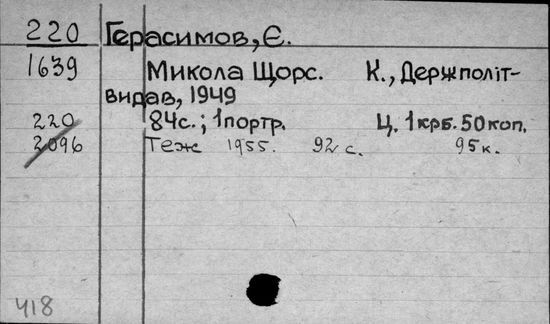 220 Герасимов, Є.
1639 Микола Щорс. К., Держполіт-
видав, 1949
220 84с.; 1портр. Ц. 1крб. 50коп.
2096 Теж 1955. 92 с. 95к.
418